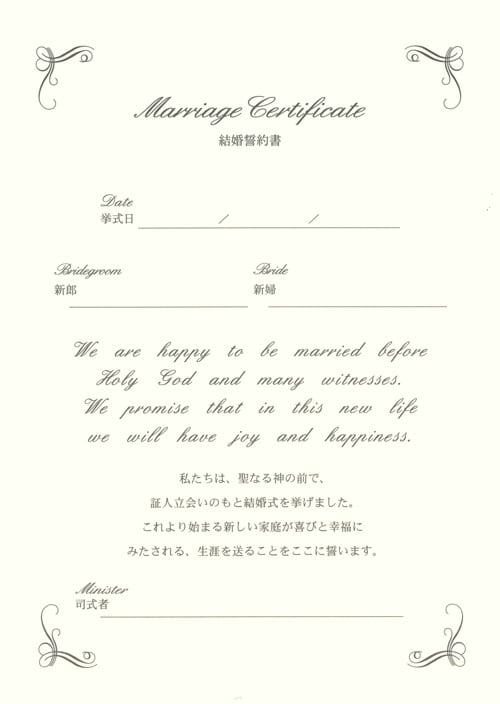 Marriage Certificate
結婚誓約書
Date
挙式日 / /
Bridegroom Bride
新郎 新婦
We are happy to be married before
Holy God and many witnesses.
We promise that in this new life
we will have joy and happiness.
私たちは、聖なる神の前で、
証人立会いのもと結婚式を挙げました。
これより始まる新しい家庭が喜びと幸福に
みたされる、生涯を送ることをここに誓います。
Minister
司式者